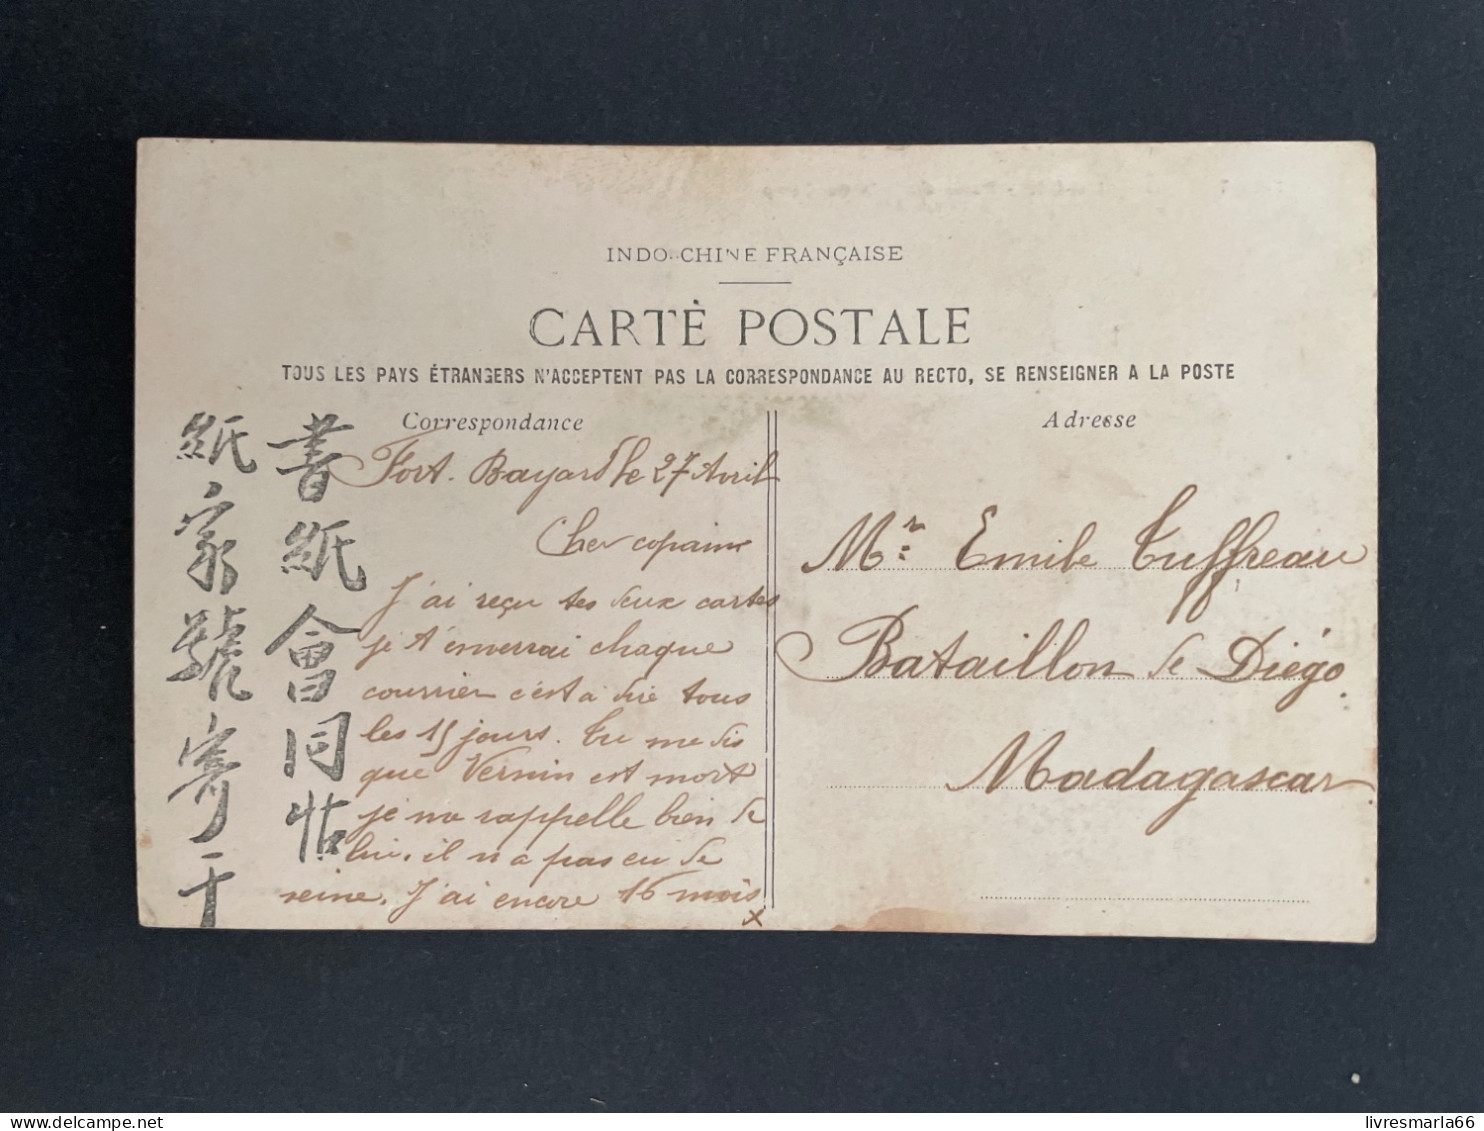 INDO-CHINE FRANÇAISE
CARTE POSTALE
TOUS LES PAYS ÉTRANGERS N'ACCEPTENT PAS LA CORRESPONDANCE AU RECTO, SE RENSEIGNER A LA POSTE
Correspondance
Fort-Bayard le 27 Avril
Cher copain
J'ai reçu tes deux cartes
je t'enverrai chaque
courrier c'est a dire tous
les 15 jours. Tu me dis
que Vernin est mort
je me rappelle bien de
lui, il n'a pas eu de
veine. J'ai encore 16 mois
x
書紙會同帖
紙家號寄于
Adresse
Mr Emile Tuffreau
Bataillon de Diégo.
Madagascar.
livresmarla66